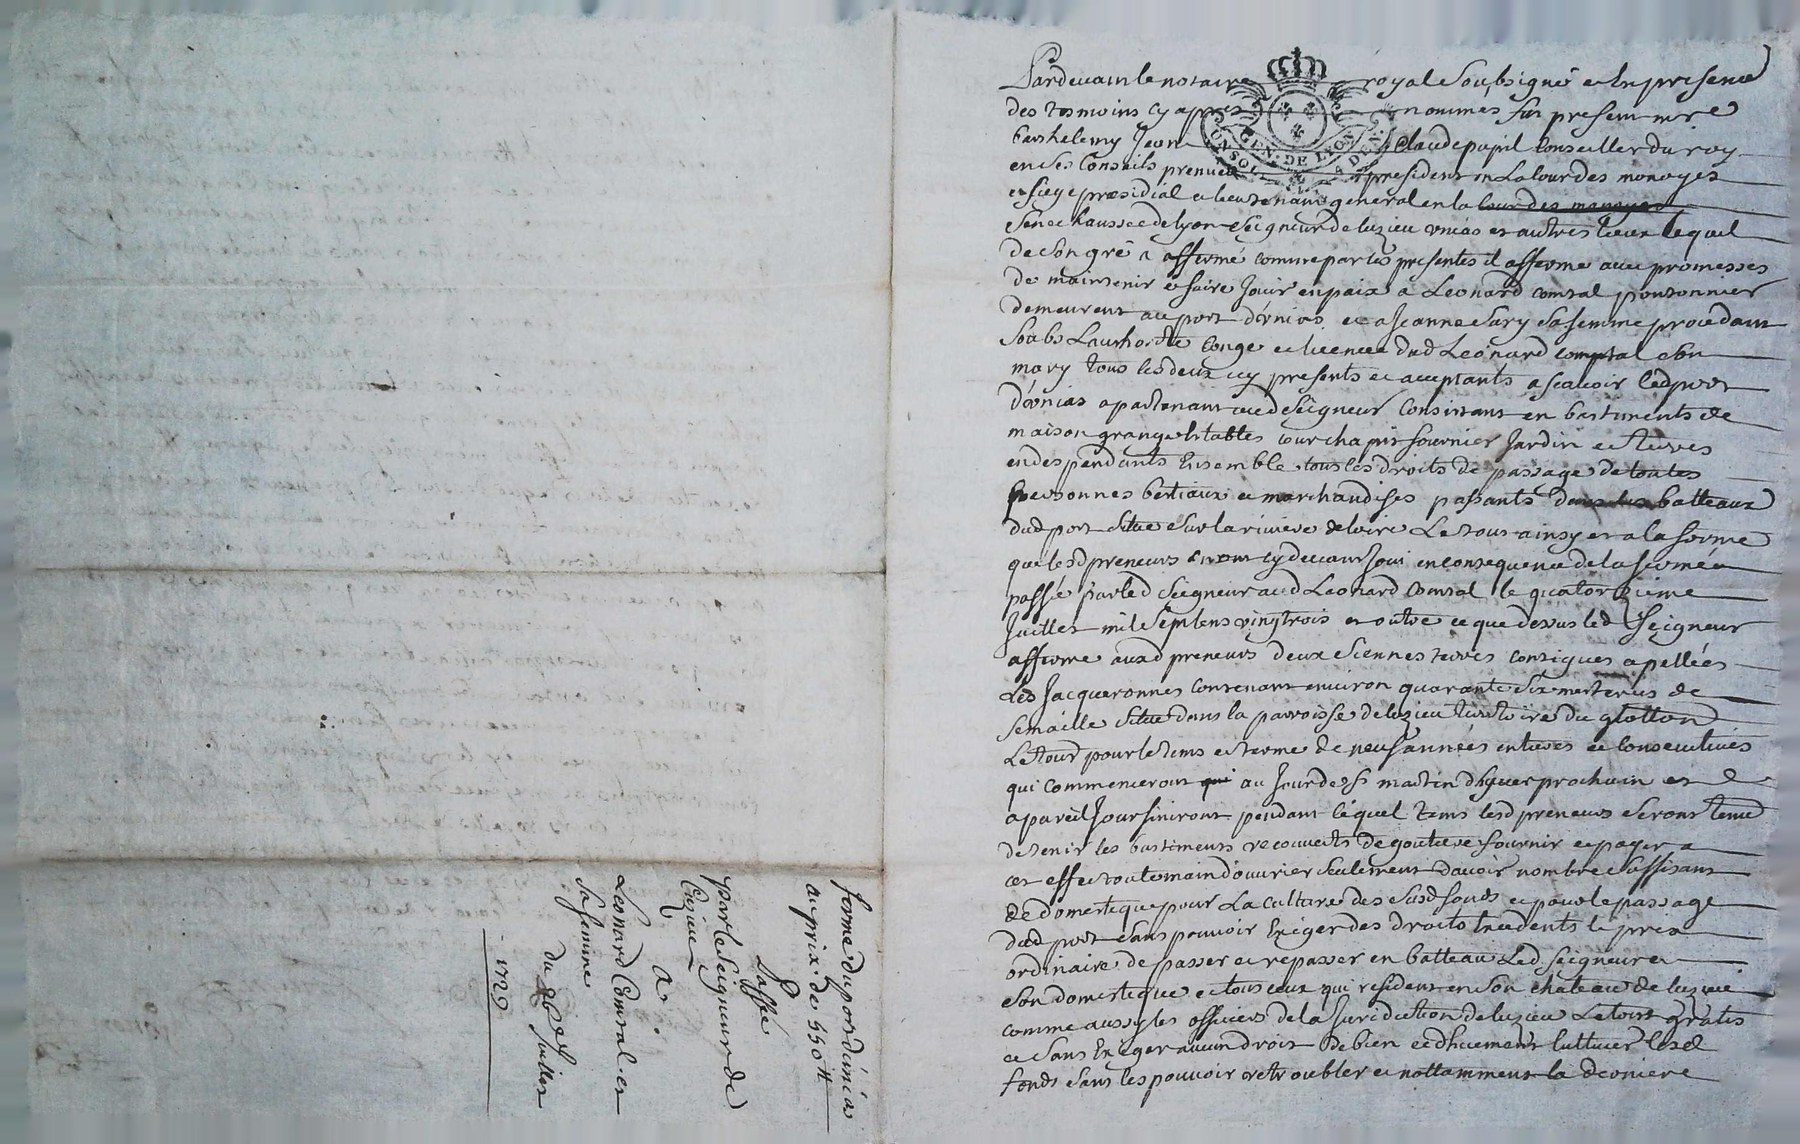 Pardevant le notaire royal Soubsigné et En presence
des tesmoins cy apres nommés fut present mre
barthelemy Jean Claude pupil Conseiller du roy
en ses Conseils premier president en La Cour des monoyes
et siege præsidial et lieutenant general en la Cour des monoyes
Senechaussée de lyon Seigneur de luzieu unias et autres lieux lequel
de Son gré a affermé comme par les presentes il afferme avec promesses
de maintenir et faire Jouir en paix a Leonard comtal pontonnier
demeurent au port d'unias et a Jeanne Sury Sa femme procedant
Soubs L'authorité Congé et licence dud Leonard comptal Son
mary tous les deux icy presents et acceptants a scavoir led port
d'unias apartenant aud Seigneur Consistant en bastiments de
maison grange Estables cour chapit fournier Jardin et terres
en despendants Ensemble tous les droits de passage de toutes
personnes bestiaux et marchandises passants dans les batteaux
dud port Situé Sur la riviere de loire Le tout ainsy et a la forme
que lesd preneurs en ont cy devant Joui en consequence de la ferme
passé par led Seigneur aud Leonard Comtal le quatorzieme
Juillet mil Sept Cens vingt trois et outre ce que dessus led Seigneur
afferme auxd preneurs deux Siennes terres contigues apellées
Les Jacqueronnes contenant environ quarante Six meterées de
Semaille Situé dans la parroisse de luzieu territoire du glotton
Le tout pour le tems et terme de neuf années entieres et Consecutives
qui commenceront qui au Jour de St martin d'hyver prochain et
a pareil Jour finiront pendant lequel tems lesd preneurs Seront tenu
de tenir les bastiments recouverts de goutiere fournir et payer a
cet effet toute main d'ouvrier Seulement d'avoir nombre Suffisant
de domestique pour La culture des Susd fonds et pour le passage
dud port Sans pouvoir Exiger des droits Excedents le prix
ordinaire de passer et repasser en batteau Led Seigneur et
Son domestique et tous ceux qui resident en Son chateau de luzieu
comme aussy les officiers de la Juridiction de luzieu Le tout gratis
et Sans Exiger aucun droit de bien et dhuement Cultiver lesd
fonds Sans les pouvoir troubler et nottamment la derniere
GEN. DE LYON
ferme du port d'unias
au prix de 550 tt
Passée
par le Seigneur de
Luzieu
A
Leonard Comtal et
Sa femme
du 26e Juillet
1729